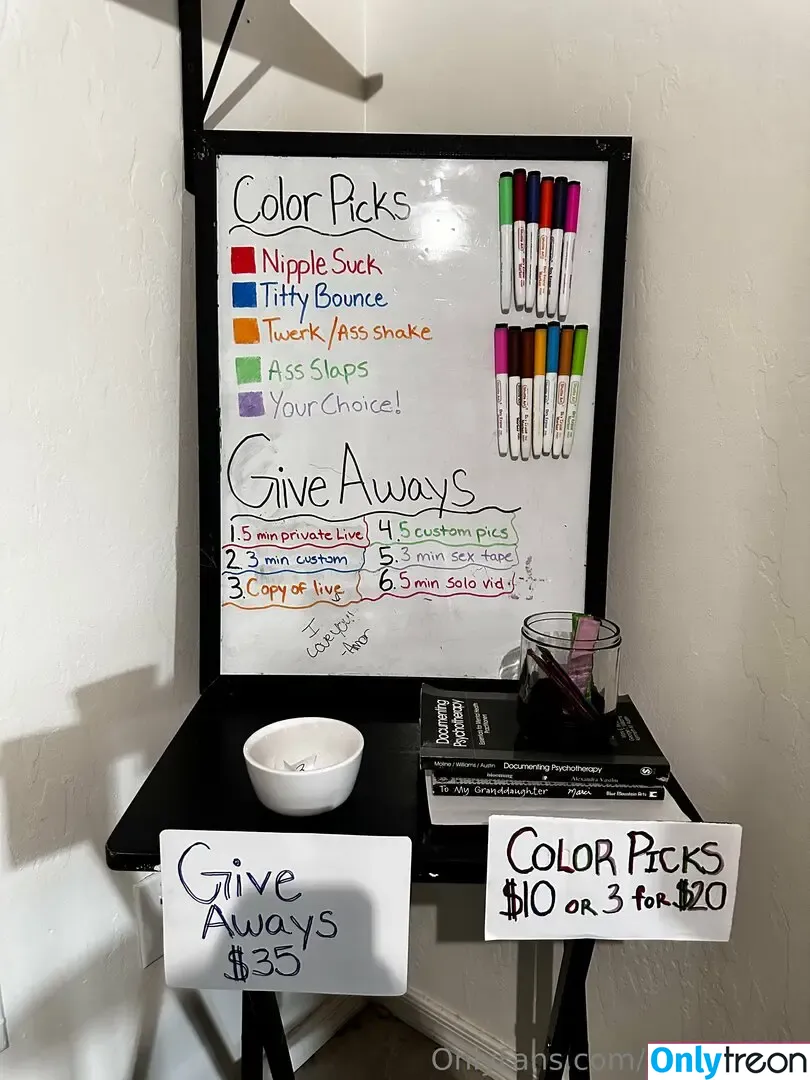 Color Picks
Nipple Suck
Titty Bounce
Twerk/Ass shake
Ass Slaps
Your Choice!
Give Aways
1. 5 min private Live
2 3 min custom
3. Copy of live
4. 5 custom pics
5. 3 min sex tape
6. 5 min solo vid.
I
Love you!!
-Amor
Documenting
Psychotherapy
Essentials for Mental Health
Practitioners
Moline / Williams / Austin Documenting Psychotherapy
Blooming Alexandra Vasiliu
To My Granddaughter Marci Blue Mountain Arts
Give
Aways
$35
COLOR PICKS
$10 OR 3 for $20
Onlytreon